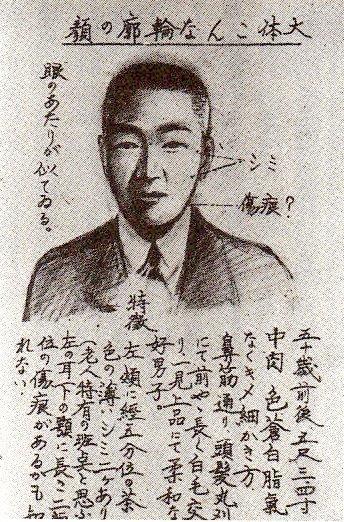 大体こんな輪廓の顔
シミ
傷痕?
眼のあたりが似てゐる。
五十歳前後 五尺三四寸
中肉 色蒼白 脂氣
なくキメ細かき方
鼻筋通り 頭髪丸刈
にて前やゝ長く白毛交
り一見上品にて柔和な
好男子。
特徴
左頬に經五分位の茶
色の薄いシミ二ケあり
(老人特有の班点と思ふ
左の耳下の顎に長さ二
位の傷痕があるかも知
れない